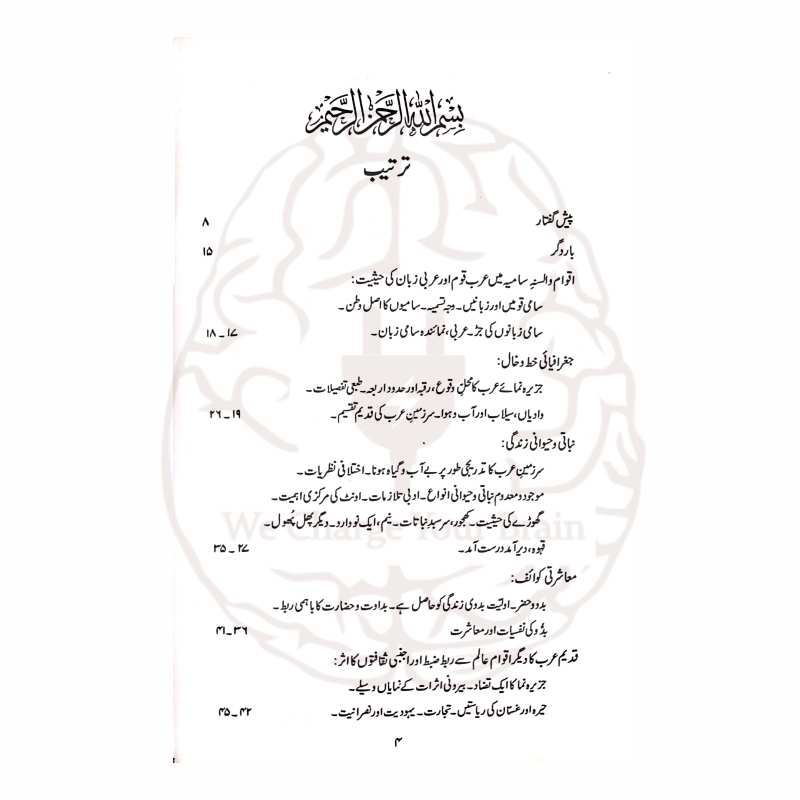 بسم اللہ الرحمن الرحیم
ترتیب
پیش گفتار ۸
بارِ دگر ۱۵
اقوام والسنہِ سامیہ میں عرب قوم اور عربی زبان کی حیثیت:
سامی قومیں اور زبانیں۔ وجہ تسمیہ۔ سامیوں کا اصل وطن۔
سامی زبانوں کی جڑ۔ عربی، نمائندہ سامی زبان۔ ۱۷۔۱۸
جغرافیائی خط و خال:
جزیرہ نمائے عرب کا محلِ وقوع، رقبہ اور حدود اربعہ۔ طبعی تفصیلات۔
وادیاں، سیلاب اور آب و ہوا۔ سرزمینِ عرب کی قدیم تقسیم۔ ۱۹۔۲۶
نباتی و حیوانی زندگی:
سرزمینِ عرب کا تدریجی طور پر بے آب و گیاہ ہونا۔ اختلافی نظریات۔
موجود و معدوم نباتی و حیوانی انواع۔ ادبی تلازمات۔ اونٹ کی مرکزی اہمیت۔
گھوڑے کی حیثیت۔ کھجور، سرسبد نباتات۔ نیم، ایک نووارد۔ دیگر پھل پُھول۔
قہوہ، دیر آمد درست آمد۔ ۲۷۔۳۵
معاشرتی کوائف:
بدو و حضر۔ اولیّت بدوی زندگی کو حاصل ہے۔ بداوت و حضارت کا باہمی ربط۔
بدُّو کی نفسیات اور معاشرت ۳۶۔۴۱
قدیم عرب کا دیگر اقوام عالم سے ربط ضبط اور اجنبی ثقافتوں کا اثر:
جزیرہ نما کا ایک تضاد۔ بیرونی اثرات کے نمایاں وسیلے۔
حیرہ اور غسّان کی ریاستیں۔ تجارت۔ یہودیت اور نصرانیت۔ ۴۲۔۴۵
۴
We Charge Your Brain